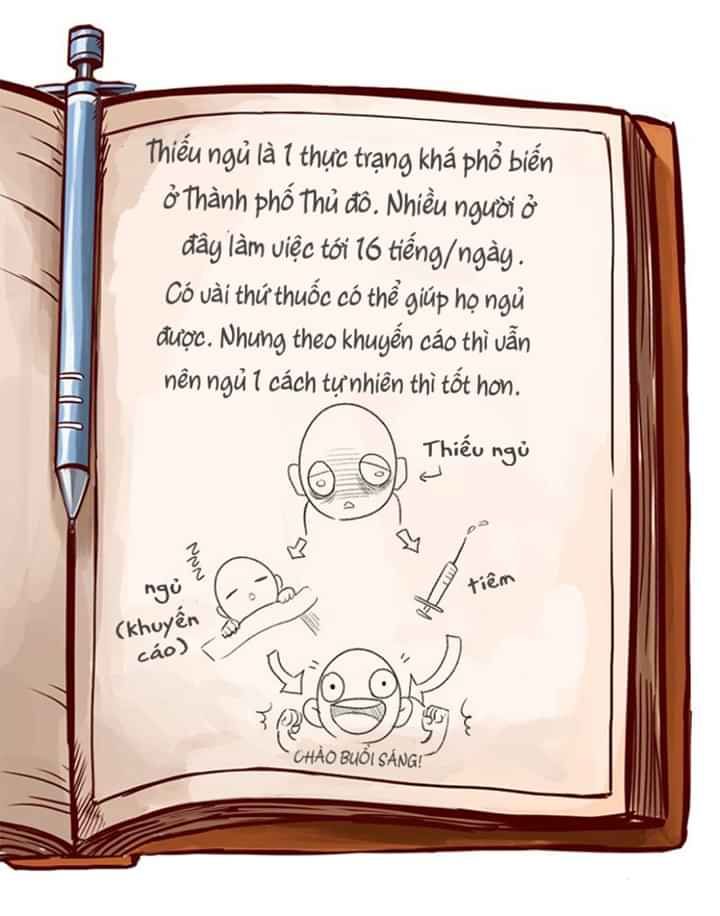 Thiếu ngủ là 1 thực trạng khá phổ biến
ở Thành phố Thủ đô. Nhiều người ở
đây làm việc tới 16 tiếng/ngày.
Có vài thứ thuốc có thể giúp họ ngủ
được. Nhưng theo khuyến cáo thì vẫn
nên ngủ 1 cách tự nhiên thì tốt hơn.
Thiếu ngủ
zzzz
ngủ
(khuyến
cáo)
tiêm
CHÀO BUỔI SÁNG!